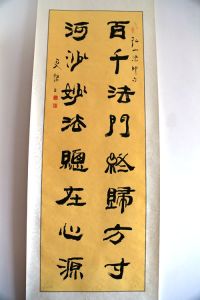 百千法門終歸方寸
河沙妙法總在心源